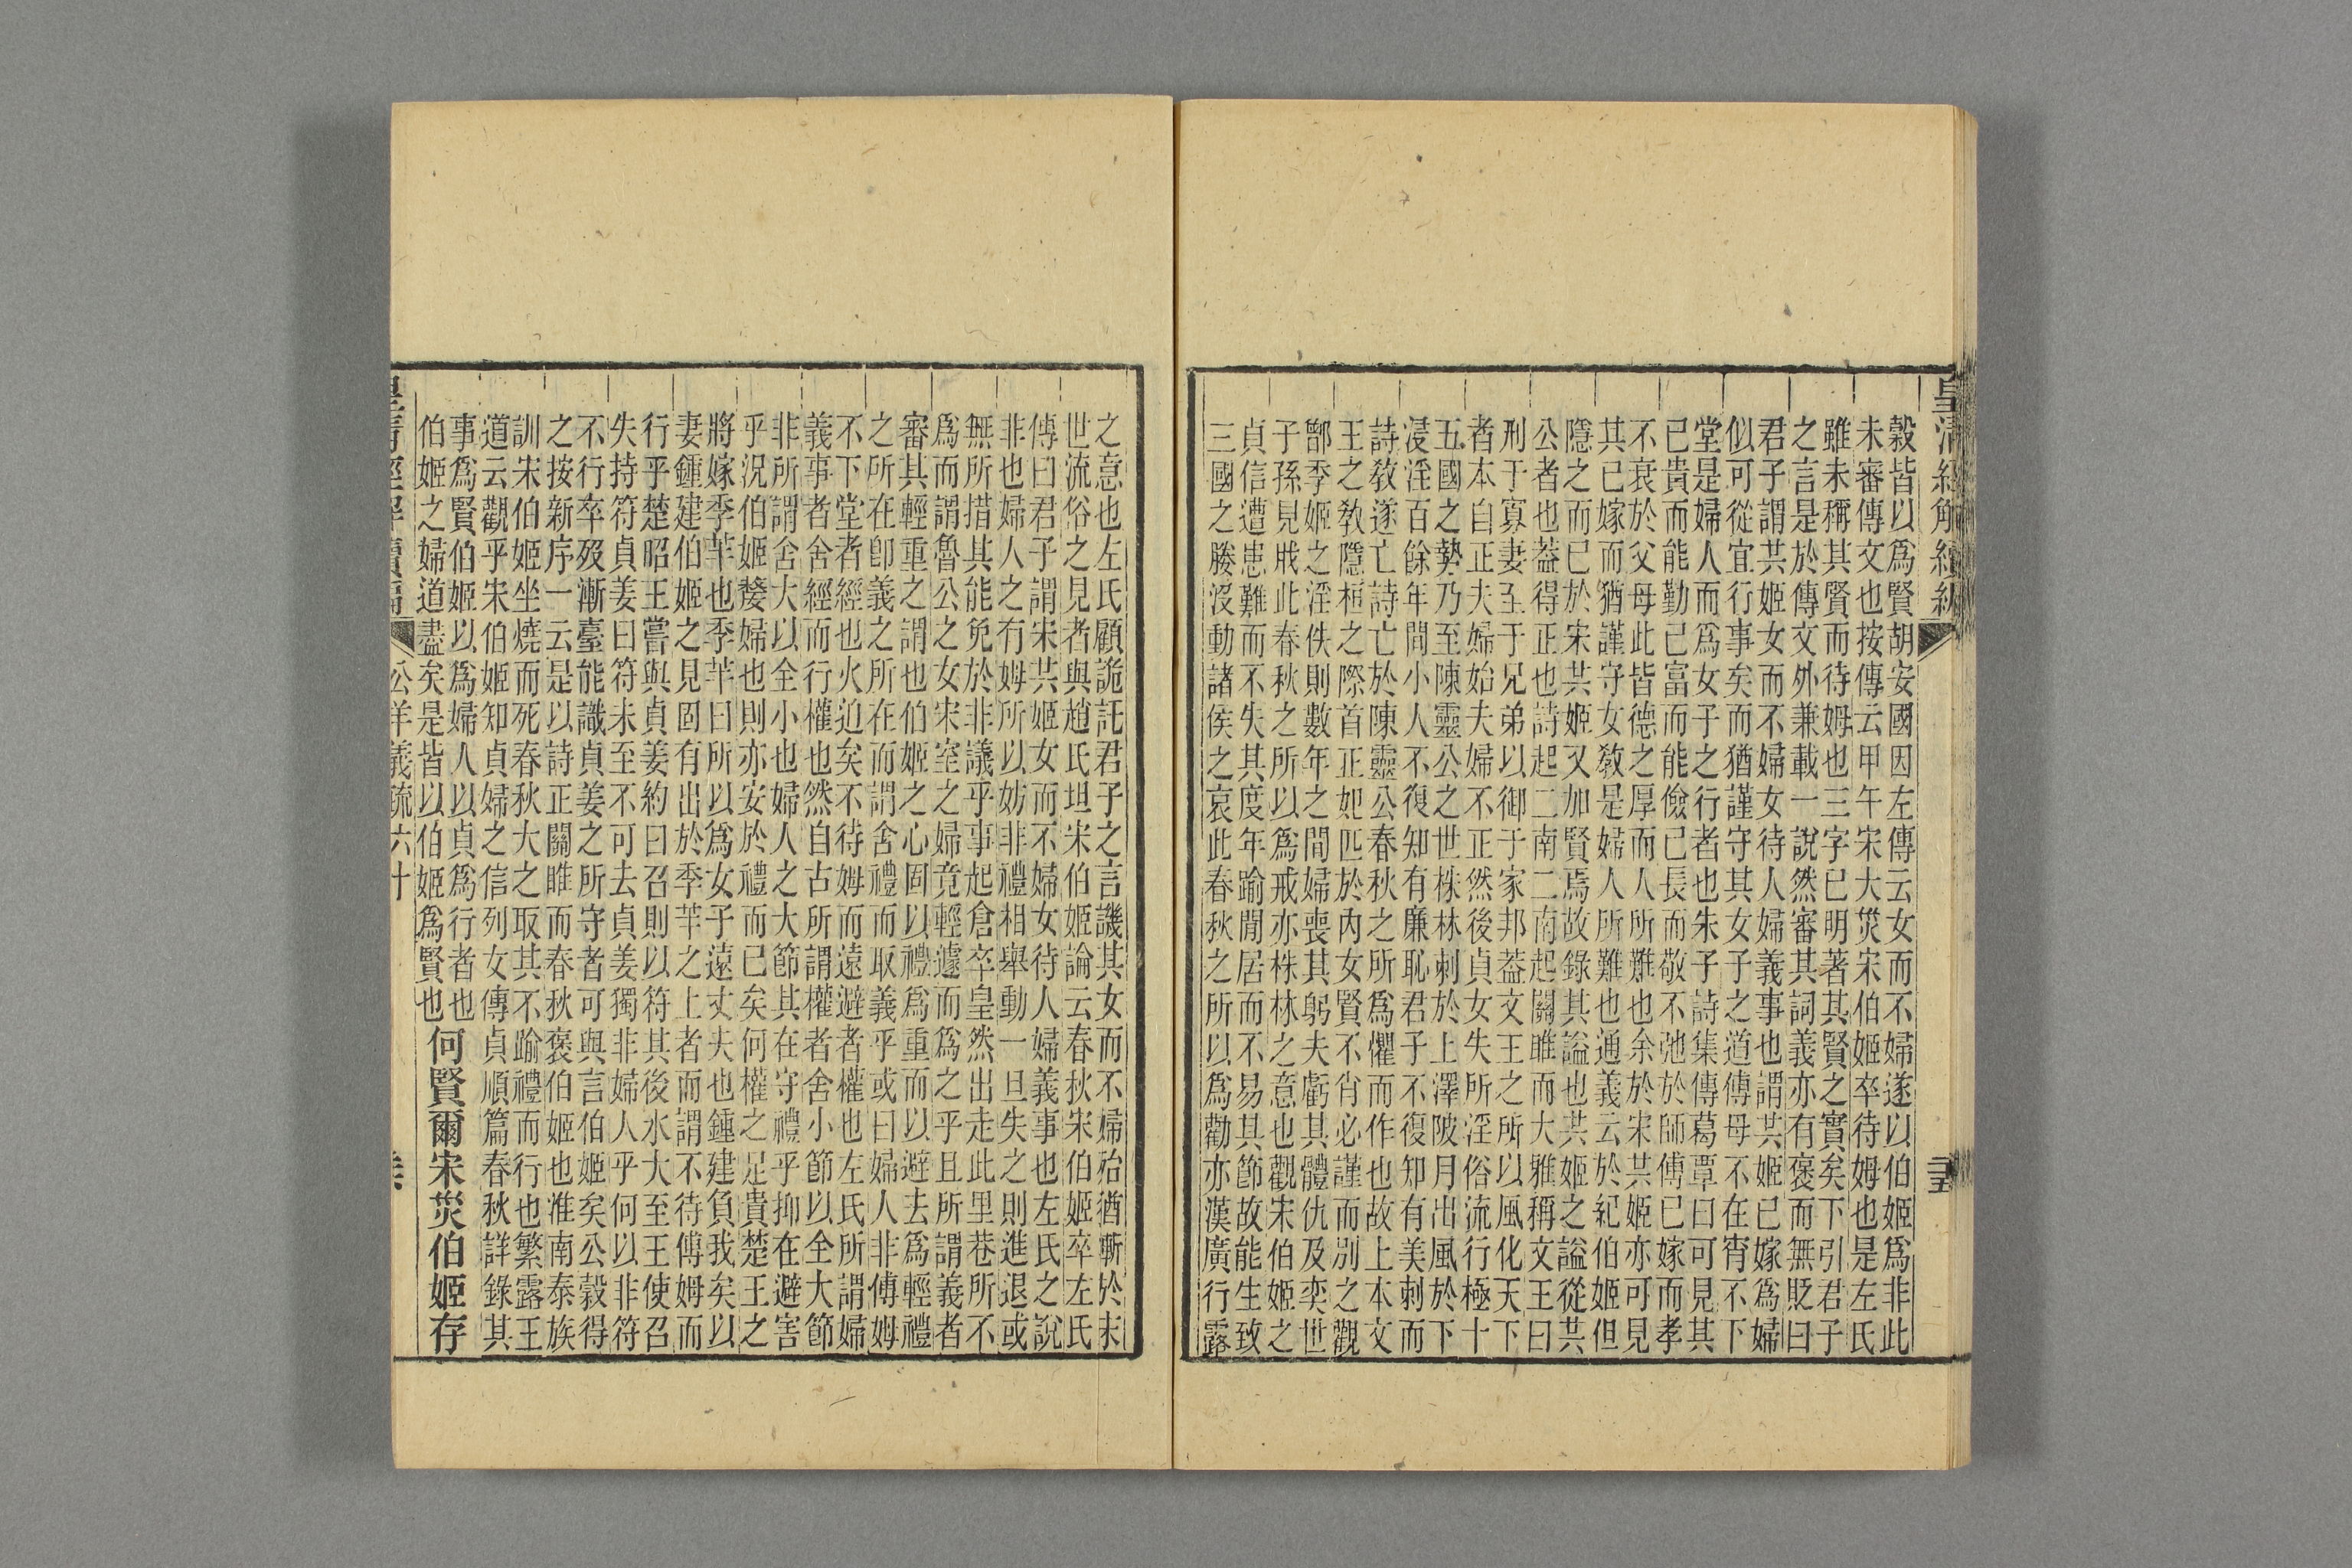 皇清經解續編
二十五
穀皆以爲賢胡安國因左傳云女而不婦遂以伯姬爲非此
未審傳文也按傳云甲午宋大災宋伯姬卒待姆也是左氏
雖未稱其賢而待姆也三字已明著其賢之實矣下引君子
之言是於傳文外兼載一說然審其詞義亦有褒而無貶曰
君子謂共姬女而不婦女待人婦義事也謂共姬已嫁爲婦
似可從宜行事矣而猶謹守其女子之道傅母不在宵不下
堂是婦人而爲女子之行者也朱子詩集傳葛覃曰可見其
已貴而能勤已富而能儉已長而敬不弛於師傅已嫁而孝
不衰於父母此皆德之厚而人所難也余於宋共姬亦可見
其已嫁而猶謹守女敎是婦人所難也通義云於紀伯姬但
隱之而已於宋共姬又加賢焉故錄其謚也共姬之謚從共
公者也葢得正也詩起二南二南起關雎而大雅稱文王曰
刑于寡妻至于兄弟以御于家邦葢文王之所以風化天下
者本自正夫婦始夫婦不正然後貞女失所淫俗流行極十
五國之勢乃至陳靈公之世株林刺於上澤陂月出風於下
浸淫百餘年間小人不復知有廉恥君子不復知有美刺而
詩敎遂亡詩亡於陳靈公春秋之所爲懼而作也故上本文
王之敎隱桓之際首正妃匹於內女賢不肖必謹而別之觀
鄫季姬之淫佚則數年之間婦喪其躬夫虧其體仇及奕世
子孫見戕此春秋之所以爲戒亦株林之意也觀宋伯姬之
貞信遭患難而不失其度年踰閒居而不易其節故能生致
三國之媵沒動諸侯之哀此春秋之所以爲勸亦漢廣行露
之意也左氏顧詭託君子之言譏其女而不婦殆猶斷於末
世流俗之見者與趙氏坦宋伯姬論云春秋宋伯姬卒左氏
傳曰君子謂宋共姬女而不婦女待人婦義事也左氏之說
非也婦人之有姆所以妨非禮相舉動一旦失之則進退或
無所措其能免於非議乎事起倉卒皇然出走此里巷所不
爲而謂魯公之女宋室之婦竟輕遽而爲之乎且所謂義者
審其輕重之謂也伯姬之心固以禮爲重而以避去爲輕禮
之所在卽義之所在而謂舍禮而取義乎或曰婦人非傅姆
不下堂者經也火迫矣不待姆而遠避者權也左氏所謂婦
義事者舍經而行權也然自古所謂權者舍小節以全大節
非所謂舍大以全小也婦人之大節其在守禮乎抑在避害
乎況伯姬嫠婦也則亦安於禮而已矣何權之足貴楚王之
將嫁季羋也季羋曰所以爲女子遠丈夫也鍾建負我矣以
妻鍾建伯姬之見固有出於季羋之上者而謂不待傅姆而
行乎楚昭王嘗與貞姜約曰召則以符其後水大至王使召
失持符貞姜曰符未至不可去貞姜獨非婦人乎何以非符
不行卒歿漸臺能識貞姜之所守者可與言伯姬矣公穀得
之按新序一云是以詩正關雎而春秋褒伯姬也淮南泰族
訓宋伯姬坐燒而死春秋大之取其不踰禮而行也繁露王
道云觀乎宋伯姬知貞婦之信列女傳貞順篇春秋詳錄其
事爲賢伯姬以爲婦人以貞爲行者也
伯姬之婦道盡矣是皆以伯姬爲賢也
何賢爾宋災伯姬存
公羊義疏六十